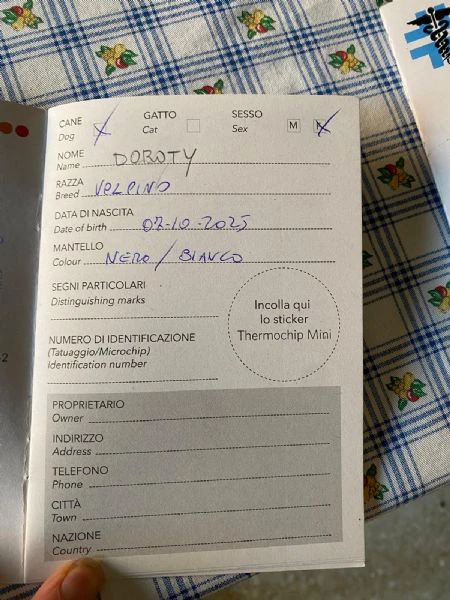 CANE GATTO SESSO
Dog Cat Sex M
NOME
Name DOROTY
RAZZA
Breed VOLPINO
DATA DI NASCITA
Date of birth 07-10-2025
MANTELLO
Colour NERO / BIANCO
SEGNI PARTICOLARI
Distinguishing marks
Incolla qui
lo sticker
Thermochip Mini
NUMERO DI IDENTIFICAZIONE
(Tatuaggio/Microchip)
Identification number
PROPRIETARIO
Owner
INDIRIZZO
Address
TELEFONO
Phone
CITTÀ
Town
NAZIONE
Country